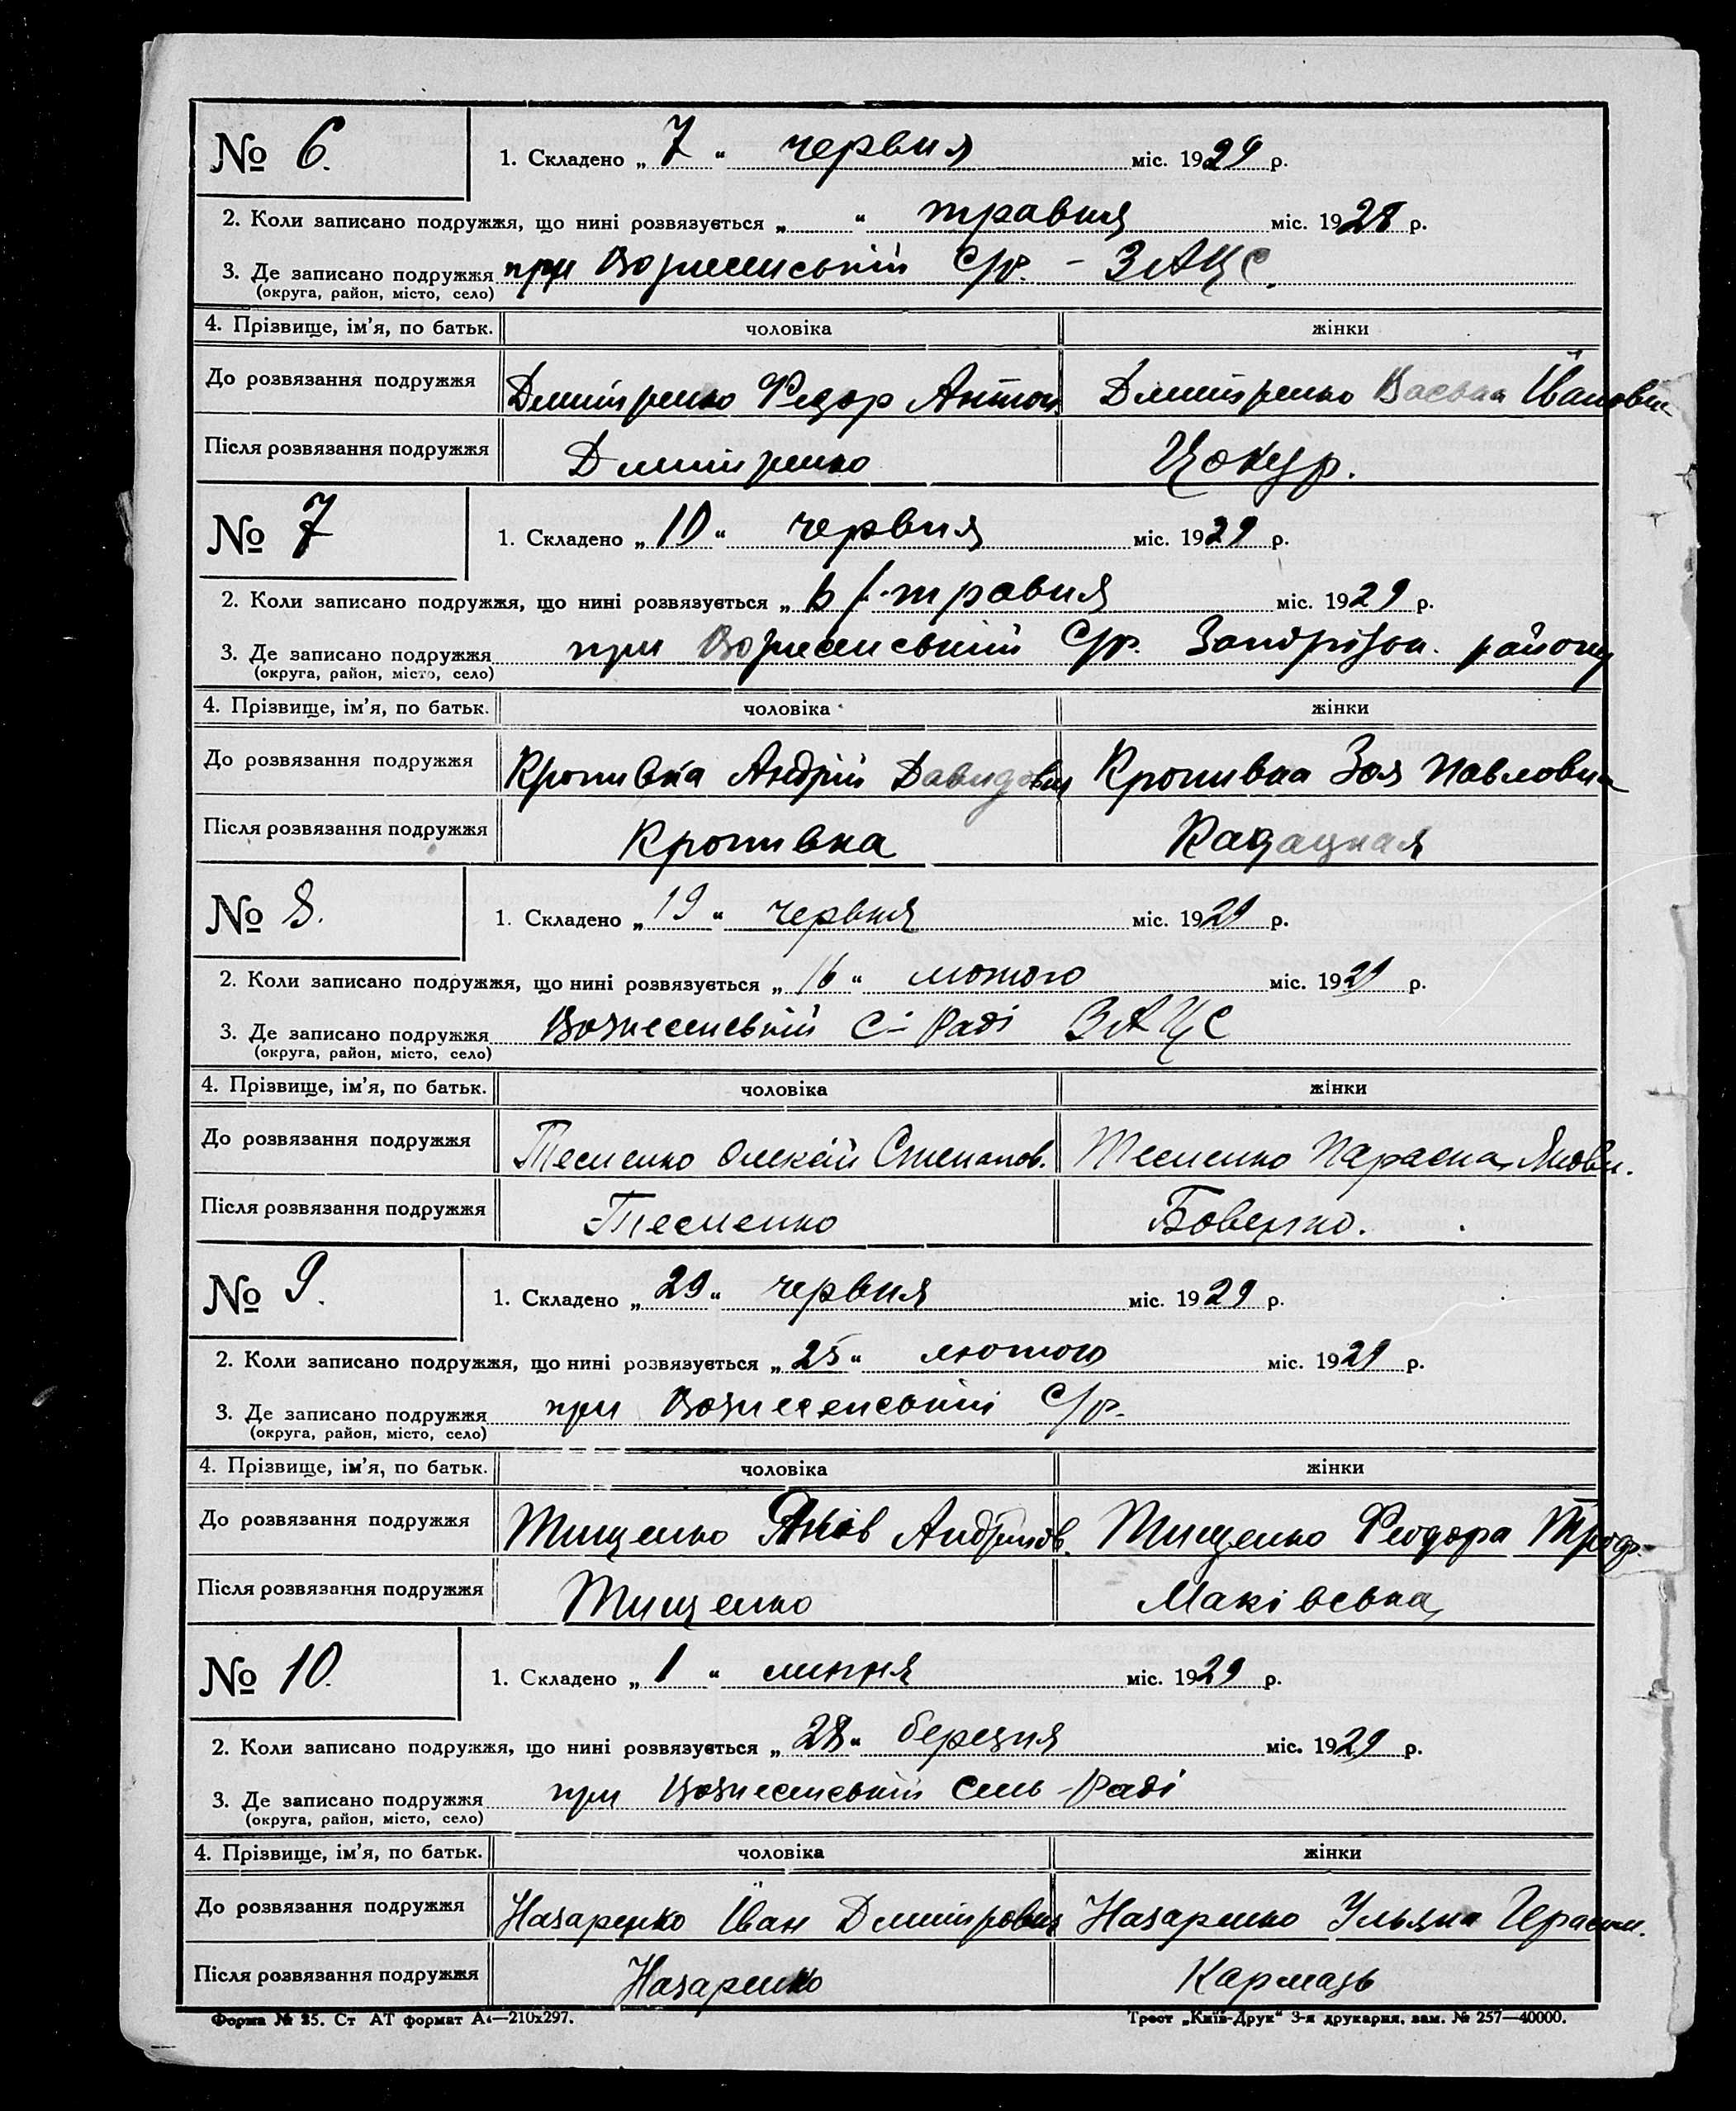 № 6. 1. Складено „ 7 “ червня міс. 1929 р.
2. Коли записано подружжя, що нині розвязується „ “ травня міс. 1928 р.
3. Де записано подружжя при Вознесенській С/р. – ЗАЦС.
(округа, район, місто, село)
4. Прізвище, ім’я, по батьк. чоловіка жінки
До розвязання подружжя Дмитренко Федор Антон. Дмитренко Івановн
Після розвязання подружжя Дмитренко Цокур.
№ 7 1. Складено „ 10 “ червня міс. 1929 р.
2. Коли записано подружжя, що нині розвязується „ травня міс. 1929 р.
3. Де записано подружжя при Вознесенській С/р. району
(округа, район, місто, село)
4. Прізвище, ім’я, по батьк. чоловіка жінки
До розвязання подружжя Кропивка Андрій Давидович Кропивка Зоя Павловна
Після розвязання подружжя Кропивка Кадацкая
№ 8. 1. Складено „ 19 “ червня міс. 1929 р.
2. Коли записано подружжя, що нині розвязується „ 16 “ лютого міс. 1929 р.
3. Де записано подружжя Вознесенській С– Раді ЗАЦС
(округа, район, місто, село)
4. Прізвище, ім’я, по батьк. чоловіка жінки
До розвязання подружжя Тесленко Олексій Степанов. Тесленко Параска Яковл.
Після розвязання подружжя Тесленко
№ 9. 1. Складено „ 29 “ червня міс. 1929 р.
2. Коли записано подружжя, що нині розвязується „ 25 “ лютого міс. 1929 р.
3. Де записано подружжя при Вознесенській С/р.
(округа, район, місто, село)
4. Прізвище, ім’я, по батьк. чоловіка жінки
До розвязання подружжя Тищенко Яків Андріїов. Тищенко Феодора
Після розвязання подружжя Тищенко Маківська
№ 10. 1. Складено „ 1 “ липня міс. 1929 р.
2. Коли записано подружжя, що нині розвязується „ 28 “ березня міс. 1929 р.
3. Де записано подружжя при Вознесенській Сель-Раді
(округа, район, місто, село)
4. Прізвище, ім’я, по батьк. чоловіка жінки
До розвязання подружжя Назаренко Іван Дмитрович Назаренко Ульяна Герасим.
Після розвязання подружжя Назаренко Кармазь
Форма № 25. Ст АТ формат А4—210x297. Трест „Київ-Друк“ 3-я друкарня, зам. № 257—40000.